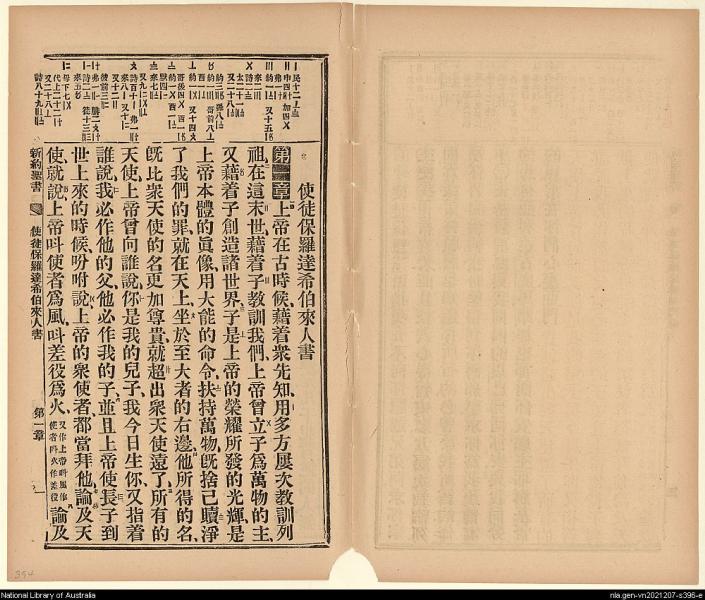 使徒保羅達希伯來人書
第一章上帝在古時候藉着衆先知用多方屢次教訓列
祖在這末世藉着子教訓我們上帝曾立子爲萬物的主
又藉着子創造諸世界子是上帝的榮耀所發的光輝是
上帝本體的眞像用大能的命令扶持萬物旣捨己贖淨
了我們的罪就在天上坐於至大者的右邊他所得的名
旣比衆天使的名更加尊貴就超出衆天使遠了所有的
天使上帝曾向誰說你是我的兒子我今日生你又指着
誰說我必作他的父他必作我的子並且上帝使長子到
世上來的時候吩咐說上帝的衆使者都當拜他論及天
使就說上帝叫使者爲風叫差役爲火又作上帝叫風作使者叫火作差役論及
新約聖書 使徒保羅達希伯來人書 第一章 一
394
National Library of Australia
nla.gen-vn2021207-s396-e